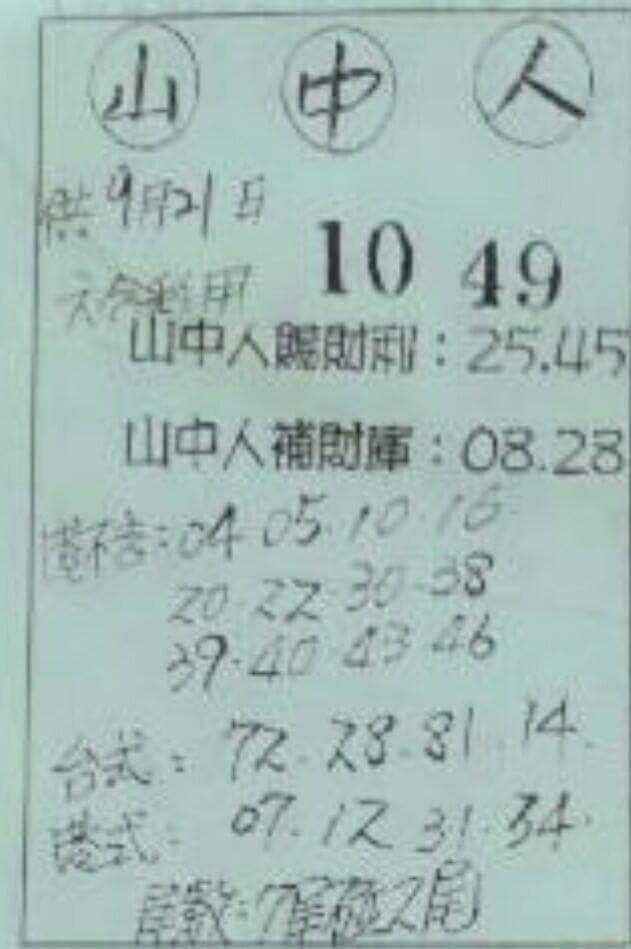 山 中 人
供9月21日
10 49
六合彩用
山中人賜財利：25.45
山中人補財庫：08.28
04.05.10.16
20.22.30.38
39.40.43.46
台式：72.28.81.14.
港式：07.12 31.34.
尾數：7尾 2尾